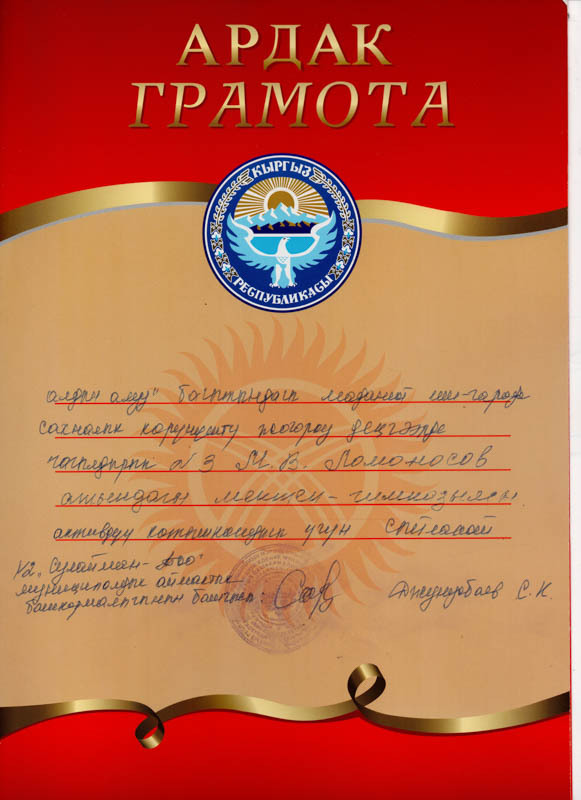 АРДАК
ГРАМОТА
КЫРГЫЗ
РЕСПУБЛИКАСЫ
алдын алуу" багытындагы маданий иш-чарада
сахналык көрүнүштү жогорку деңгээлде
чагылдырып №3 М.В. Ломоносов
атындагы мектеп-гимназиясы
активдүү катышкандыгы үчүн сыйланат
№2 „Сулайман-Тоо"
муниципалдык аймактык
башкармалыгынын башчысы:
Джунусбаев С.К.